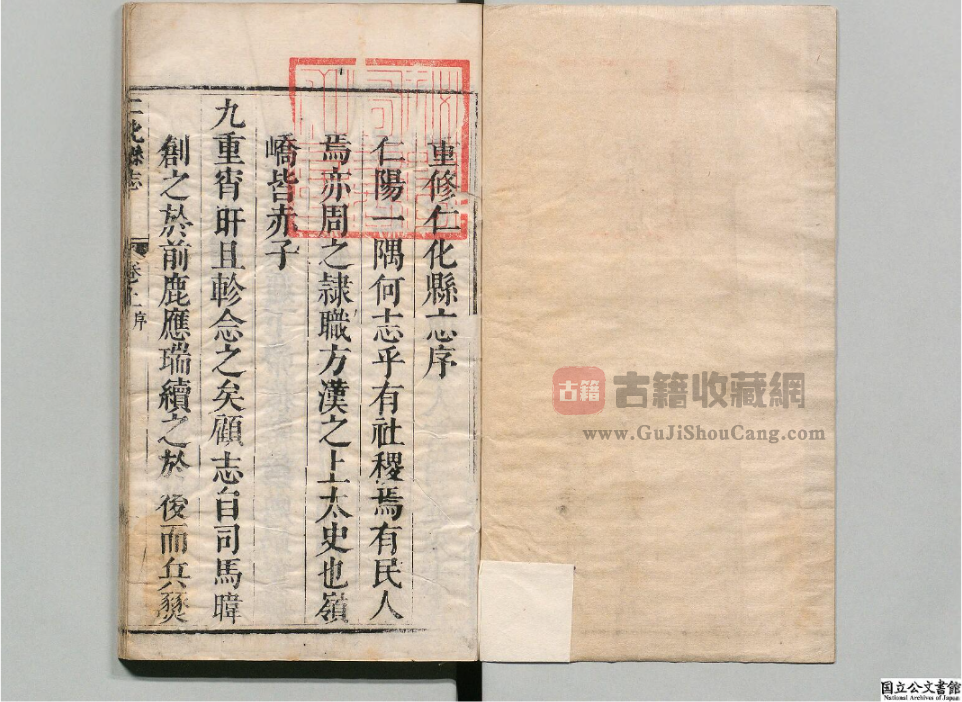 重修仁化縣志序
仁陽一隅何志乎有社稷焉有民人
焉亦周之隷職方漢之上太史也嶺
嶠皆赤子
九重宵旰且軫念之矣顧志自司馬暐
創之於前鹿應瑞續之於後而兵燹
仁化縣志
卷上序
古籍
古籍收藏網
www.GuJiShouCang.com
国立公文書館
National Archives of Japan